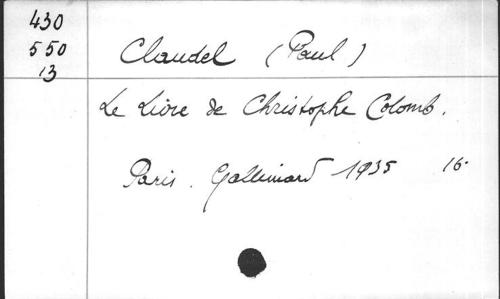 430
550
13
Claudel (Paul)
Le Livre de Christophe Colomb.
Paris. Gallimard 1935 16.